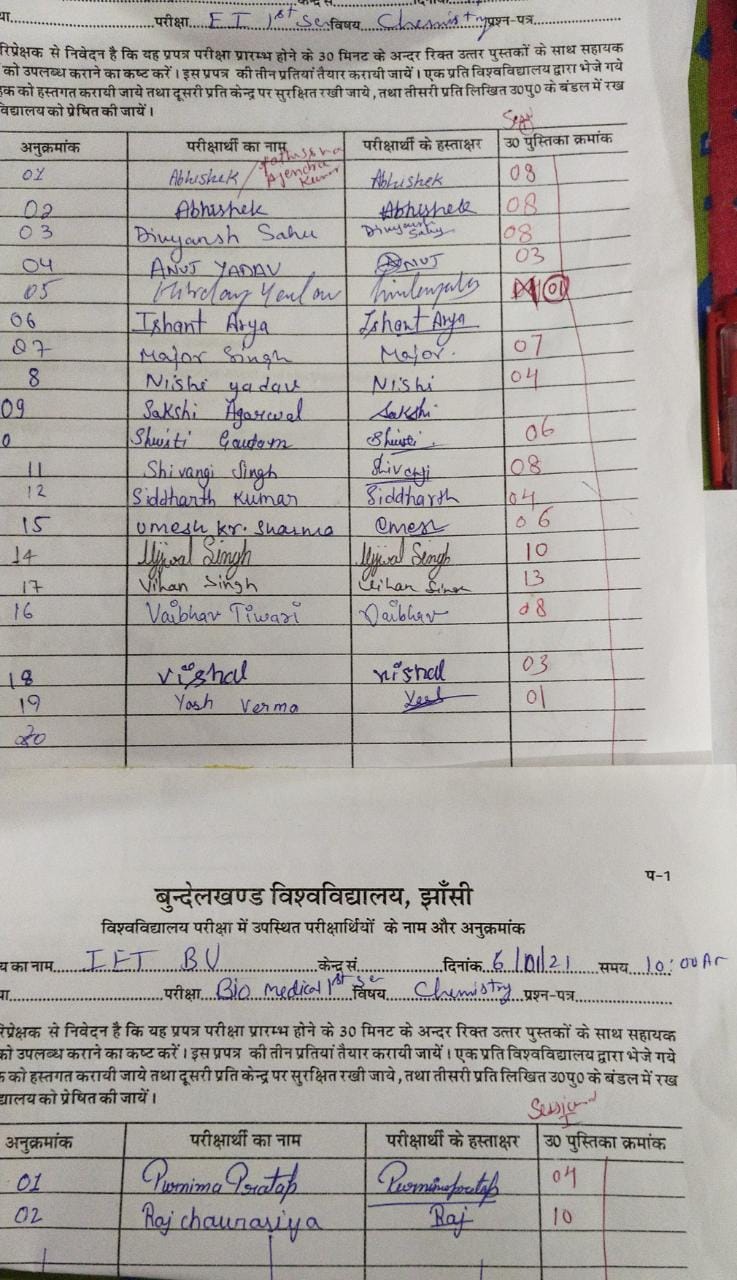 परीक्षा EI 1st Se विषय Chemistry प्रश्न-पत्र
रिप्रेक्षक से निवेदन है कि यह प्रपत्र परीक्षा प्रारम्भ होने के 30 मिनट के अन्दर रिक्त उत्तर पुस्तकों के साथ सहायक
को उपलब्ध कराने का कष्ट करें। इस प्रपत्र की तीन प्रतियां तैयार करायी जायें। एक प्रति विश्वविद्यालय द्वारा भेजे गये
क को हस्तगत करायी जाये तथा दूसरी प्रति केन्द्र पर सुरक्षित रखी जाये, तथा तीसरी प्रति लिखित उ0पु0 के बंडल में रख
विद्यालय को प्रेषित की जायें।
अनुक्रमांक परीक्षार्थी का नाम परीक्षार्थी के हस्ताक्षर उ0 पुस्तिका क्रमांक
01 Abhishek Abhishek 08
02 Abhishek Abhishek 08
03 Divyansh Sahu Divyansh Sahu 08
04 ANUJ YADAV ANUJ 03
05 01
06 Ishant Arya Ishant Arya
07 Major Singh Major. 07
8 Nishi yadav Nishi 04
09 Sakshi Agarwal Sakshi
0 Gautam 06
11 Shivangi Singh Shivangi 08
12 Siddharth Kumar Siddharth 04
15 Umesh kr. Sharma Umesh 06
14 Ujjwal Singh Ujjwal Singh 10
17 Vihan Singh Vihan Singh 13
16 Vaibhav Tiwari Vaibhav 08
18 Vishal Vishal 03
19 Yash Verma 01
20
प-1
बुन्देलखण्ड विश्वविद्यालय, झाँसी
विश्वविद्यालय परीक्षा में उपस्थित परीक्षार्थियों के नाम और अनुक्रमांक
य का नाम IET BU केन्द्र सं दिनांक 6/01/21 समय 10:00 Am
परीक्षा Bio medical 1st Se विषय Chemistry प्रश्न-पत्र
रिप्रेक्षक से निवेदन है कि यह प्रपत्र परीक्षा प्रारम्भ होने के 30 मिनट के अन्दर रिक्त उत्तर पुस्तकों के साथ सहायक
को उपलब्ध कराने का कष्ट करें। इस प्रपत्र की तीन प्रतियां तैयार करायी जायें। एक प्रति विश्वविद्यालय द्वारा भेजे गये
क को हस्तगत करायी जाये तथा दूसरी प्रति केन्द्र पर सुरक्षित रखी जाये, तथा तीसरी प्रति लिखित उ0पु0 के बंडल में रख
द्यालय को प्रेषित की जायें।
Sessional I
अनुक्रमांक परीक्षार्थी का नाम परीक्षार्थी के हस्ताक्षर उ0 पुस्तिका क्रमांक
01 Purnima Pratap Purnima pratap 04
02 Raj chaurasiya Raj 10